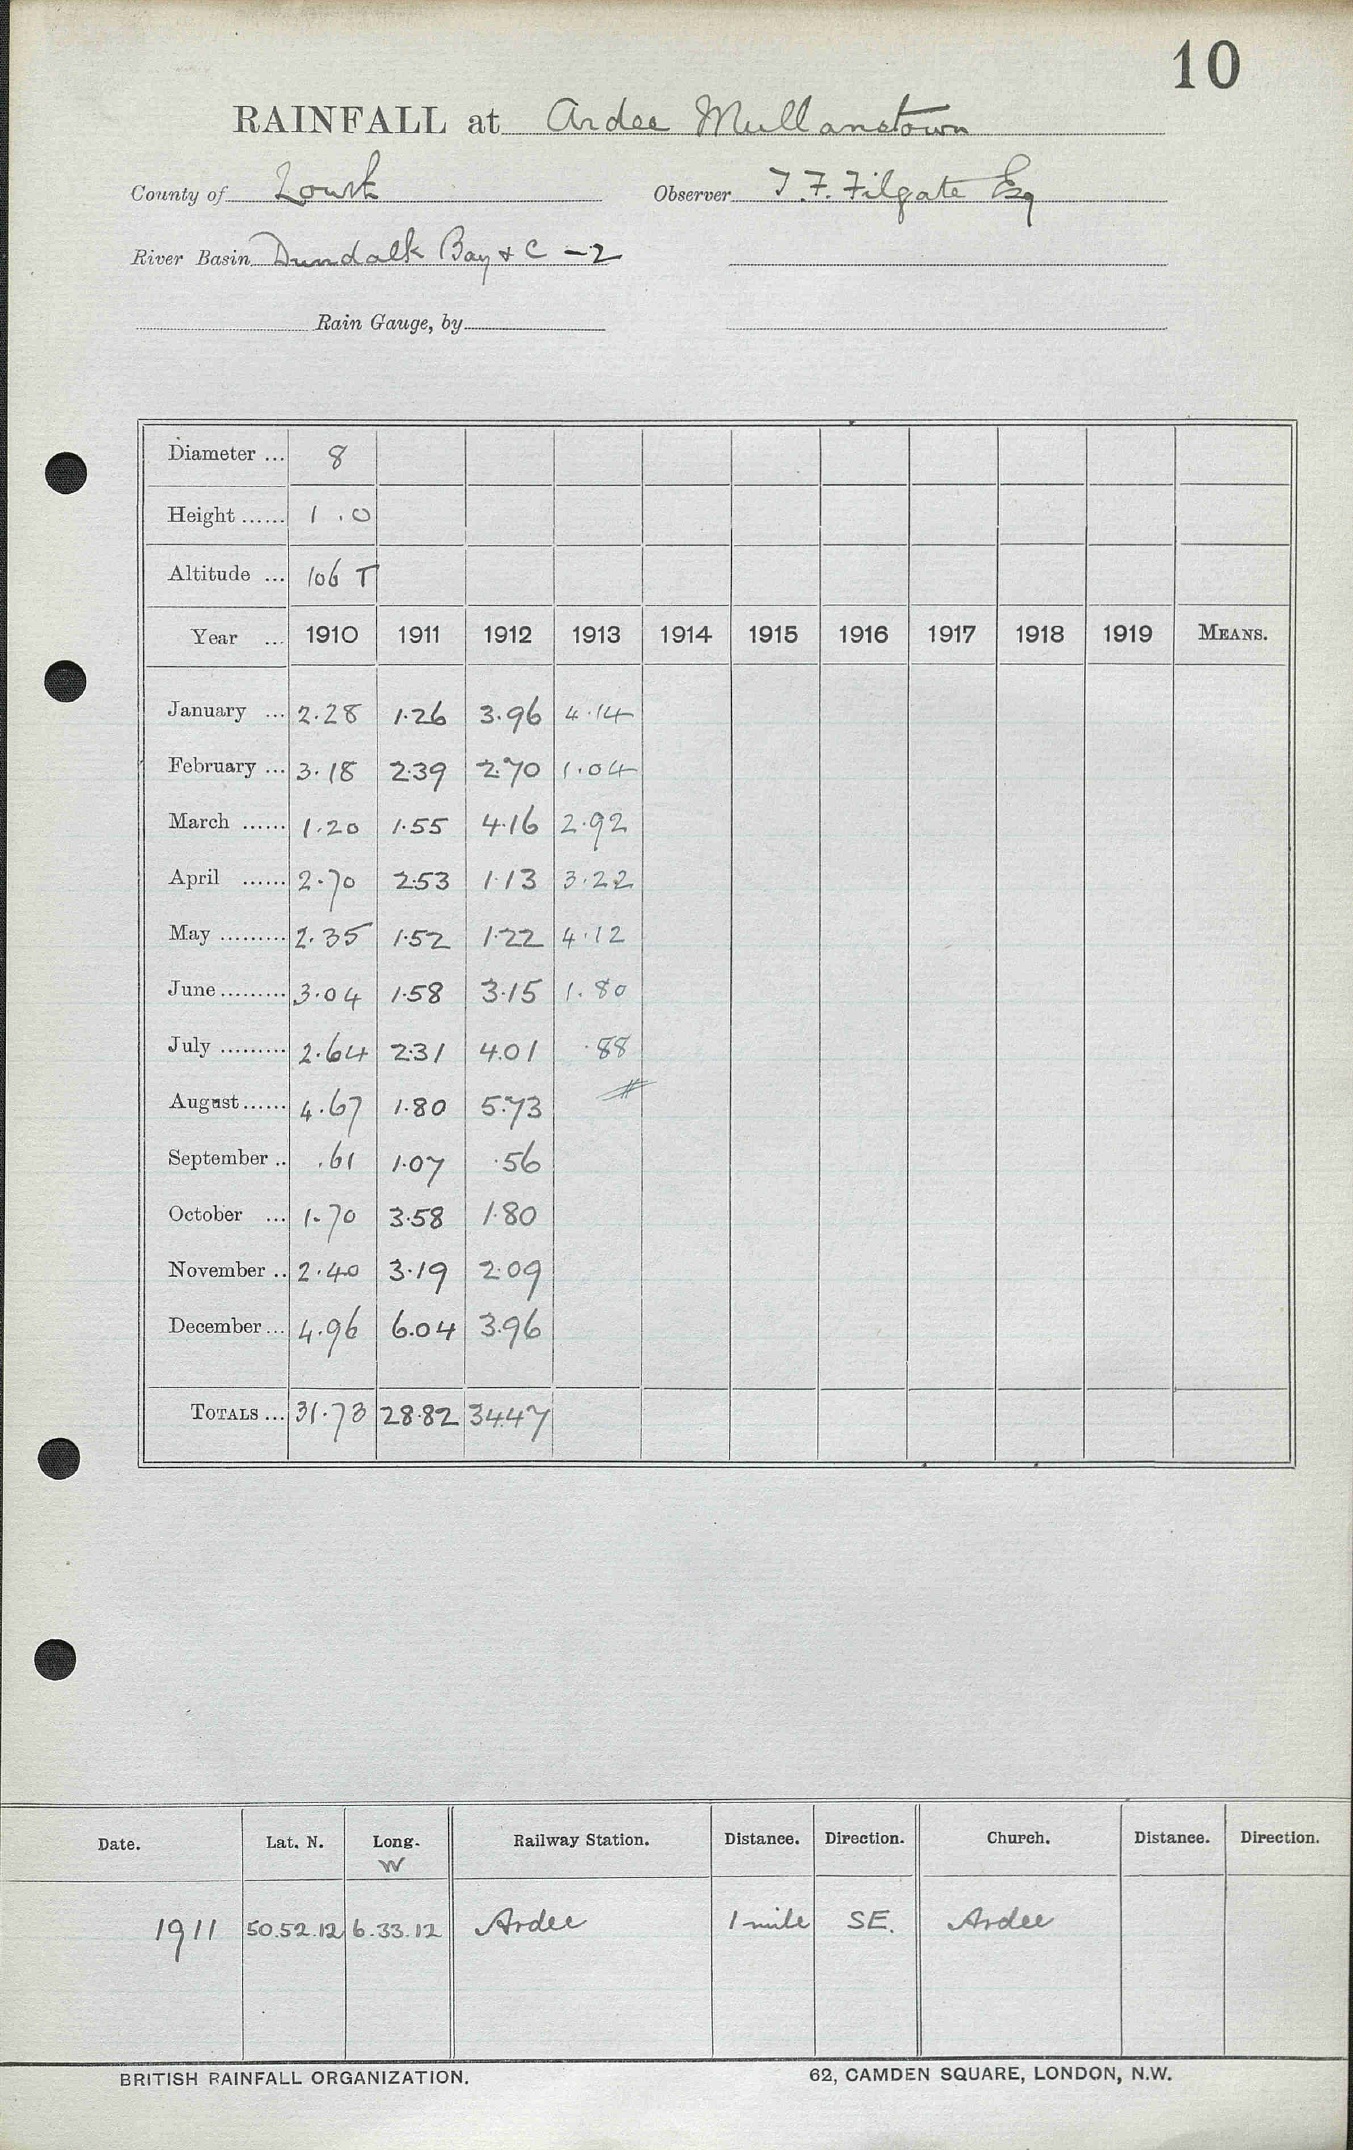 10
RAINFALL at Ardee Mullanstown
County of Louth Observer T. F. Filgate Esq
River Basin Dundalk Bay & C - 2
Rain Gauge, by
Diameter ... 8
Height ...... 1.0
Altitude ... 106 T
Year ... 1910 1911 1912 1913 1914 1915 1916 1917 1918 1919 MEANS.
January ... 2.28 1.26 3.96 4.14
February ... 3.18 2.39 2.70 1.04
March ...... 1.20 1.55 4.16 2.92
April ...... 2.70 2.53 1.13 3.22
May ......... 2.35 1.52 1.22 4.12
June ......... 3.04 1.58 3.15 1.80
July ......... 2.64 2.31 4.01 .88
August ...... 4.67 1.80 5.73
September .. .61 1.07 .56
October ... 1.70 3.58 1.80
November .. 2.40 3.19 2.09
December ... 4.96 6.04 3.96
TOTALS ... 31.73 28.82 34.47
Date. Lat. N. Long. Railway Station. Distance. Direction. Church. Distance. Direction.
W
1911 50.52.12 6.33.12 Ardee 1 mile SE. Ardee
BRITISH RAINFALL ORGANIZATION. 62, CAMDEN SQUARE, LONDON, N.W.